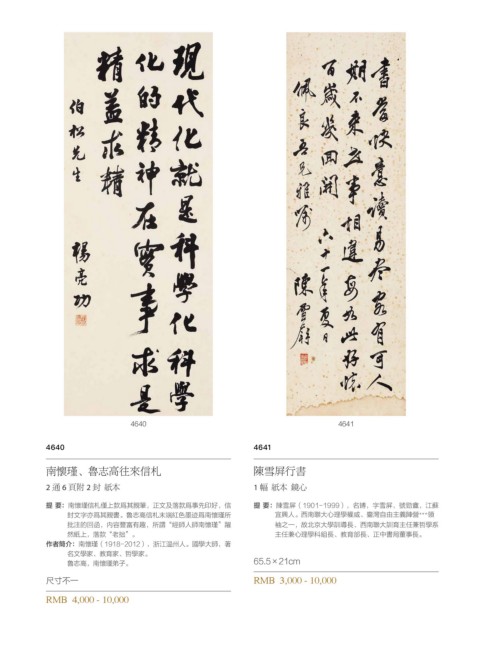 現代化就是科學化科學
化的精神在實事求是
精益求精
伯松先生
楊亮功
書當快意讀易盡客有可人
期不來世事相違每如此好懷
百歲幾回開
佩良吾兄雅囑 六十一年夏日 陳雪屏
4640
4641
4640
南懷瑾、魯志高往來信札
2 通 6 頁附 2 封 紙本
提 要:南懷瑾信札僅上款爲其親筆,正文及落款爲事先印好,信
封文字亦爲其親書。魯志高信札末端紅色墨迹爲南懷瑾所
批注的回函,内容豐富有趣,所謂“經師人師南懷瑾”躍
然紙上,落款“老拙”。
作者簡介:南懷瑾(1918-2012),浙江温州人。國學大師,著
名文學家,教育家,哲學家。
魯志高,南懷瑾弟子。
尺寸不一
RMB 4,000 - 10,000
4641
陳雪屏行書
1 幅 紙本 鏡心
提 要:陳雪屏(1901-1999),名騁,字雪屏,號勁盦,江蘇
宜興人。西南聯大心理學權威,臺灣自由主義陣營***領
袖之一,故北京大學訓導長,西南聯大訓育主任兼哲學系
主任兼心理學科組長、教育部長,正中書局董事長。
65.5×21cm
RMB 3,000 - 10,000